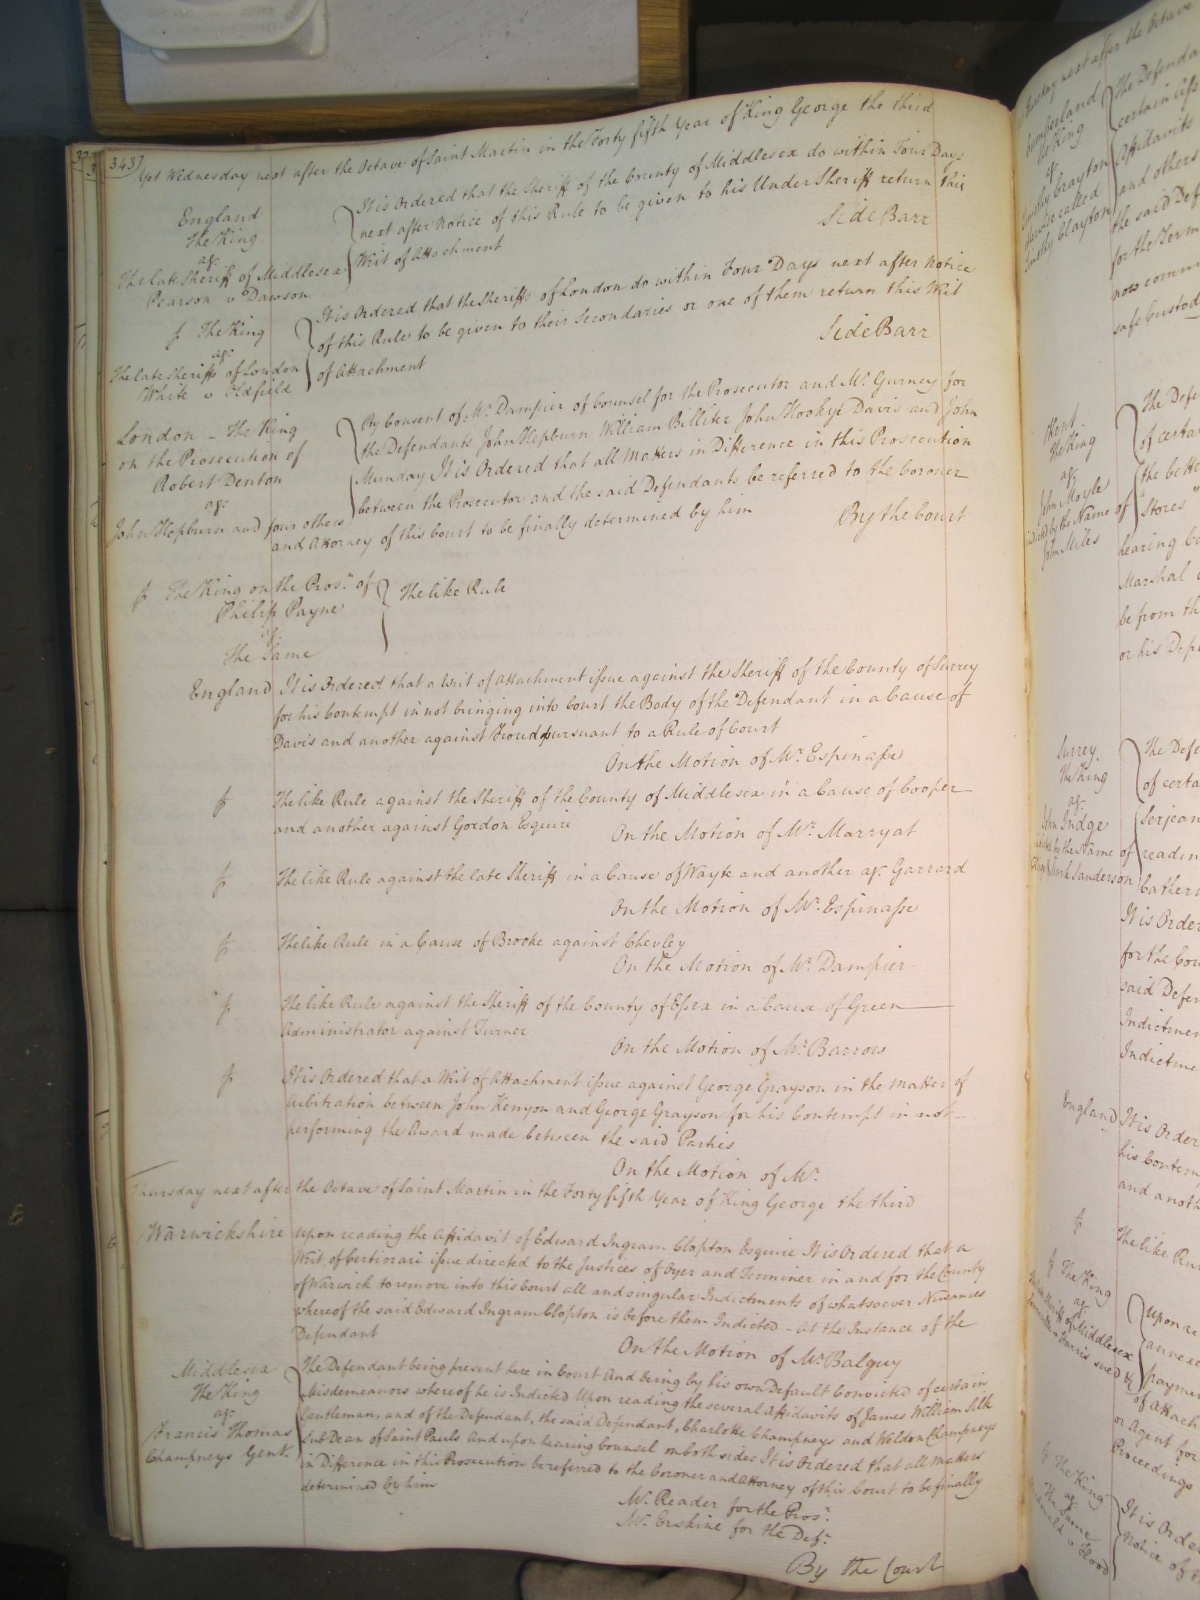 343
Yet Wednesday next after the Octave of Saint Martin in the Forty fifth Year of King George the third
England
The King
agt
The late Sheriff of Middlesex
Pearson v Dawson
It is Ordered that the Sheriff of the County of Middlesex do within Four Days
next after Notice of this Rule to be given to his Under Sheriff return this
Writ of Attachment
Side Barr
The King
agt
The late Sheriffs of London
White v Oldfield
It is Ordered that the Sheriffs of London do within Four Days next after Notice
of this Rule to be given to their Secondaries or one of them return this Writ
of Attachment
Side Barr
London - The King
on the Prosecution of
Robert Denton
agt
John Hepburn and four others
By Consent of Mr. Dampier of Counsel for the Prosecutor and Mr. Gurney for
the Defendants John Hepburn William Billiter John Hookye Davis and John
Munday It is Ordered that all Matters in Difference in this Prosecution
between the Prosecutor and the said Defendants be referred to the Coroner
and Attorney of this Court to be finally determined by him
By the Court
The King on the Prosn. of
Philip Payne
agt
The Same
The like Rule
England It is Ordered that a Writ of Attachment issue against the Sheriff of the County of Surrey
for his Contempt in not bringing into Court the Body of the Defendant in a Cause of
Davis and another against pursuant to a Rule of Court
On the Motion of Mr. Espinasse
The like Rule against the Sheriff of the County of Middlesex in a Cause of Cooper
and another against Gordon Esquire
On the Motion of Mr. Marryat
The like Rule against the late Sheriff in a Cause of Wayte and another agt. Garrard
On the Motion of Mr. Espinasse
The like Rule in a Cause of Brooke against Chevley
On the Motion of Mr. Dampier
The like Rule against the Sheriff of the County of Essex in a Cause of Green
Administrator against Turner
On the Motion of Mr. Barrow
It is Ordered that a Writ of Attachment issue against George Grayson in the Matter of
Arbitration between John Kenyon and George Grayson for his Contempt in not
performing the Award made between the said Parties
On the Motion of Mr.
Thursday next after the Octave of Saint Martin in the Forty fifth Year of King George the third
Warwickshire Upon reading the Affidavit of Edward Ingram Clopton Esquire It is Ordered that a
Writ of Certiorari issue directed to the Justices of Oyer and Terminer in and for the County
of Warwick to remove into this Court all and singular Indictments of whatsoever Nuisances
whereof the said Edward Ingram Clopton is before them Indicted - at the Instance of the
Defendant
On the Motion of Mr. Balguy
Middlesex
The King
agt
Francis Thomas
Champneys Gent.
The Defendant being present here in Court And being by his own Default Convicted of certain
Misdemeanors whereof he is Indicted Upon reading the several Affidavits of James William Silk
Gentleman, and of the Defendant, the said Defendant, Charlotte Champneys and Weldon Champneys
Sub Dean of Saint Pauls And upon hearing Counsel on both sides It is Ordered that all Matters
in Difference in this Prosecution be referred to the Coroner and Attorney of this Court to be finally
determined by him
Mr. Reader for the Prosn.
Mr. Erskine for the Deft.
By the Court
Cumberland
The King
agt
Timothy Grayton
otherwise called
Timothy Clayton
The Defenda
certain Ass
Affidavits
and others
the said Def
for the Term
now comm
safe Custod
Kent
The King
agt
John Moyle
indicted by the Name of
John Miles
The Defe
of certa
the bette
Stores"
hearing Co
Marshal
be from th
or his Depu
Surrey
The King
agt
John Judge
by the Name of
Mark Sanderson
The Defe
of certa
Serjean
readin
Cather
It is Order
for the Cou
said Defen
Indictmen
Indictme
England It is Order
his Contemp
and anoth
The like Ru
The King
agt
Middlesex
Upon re
annexe
paymen
of Attach
or Agent for
Proceedings
The King
agt
The Same
v Flood
It is Orde
Notice of t